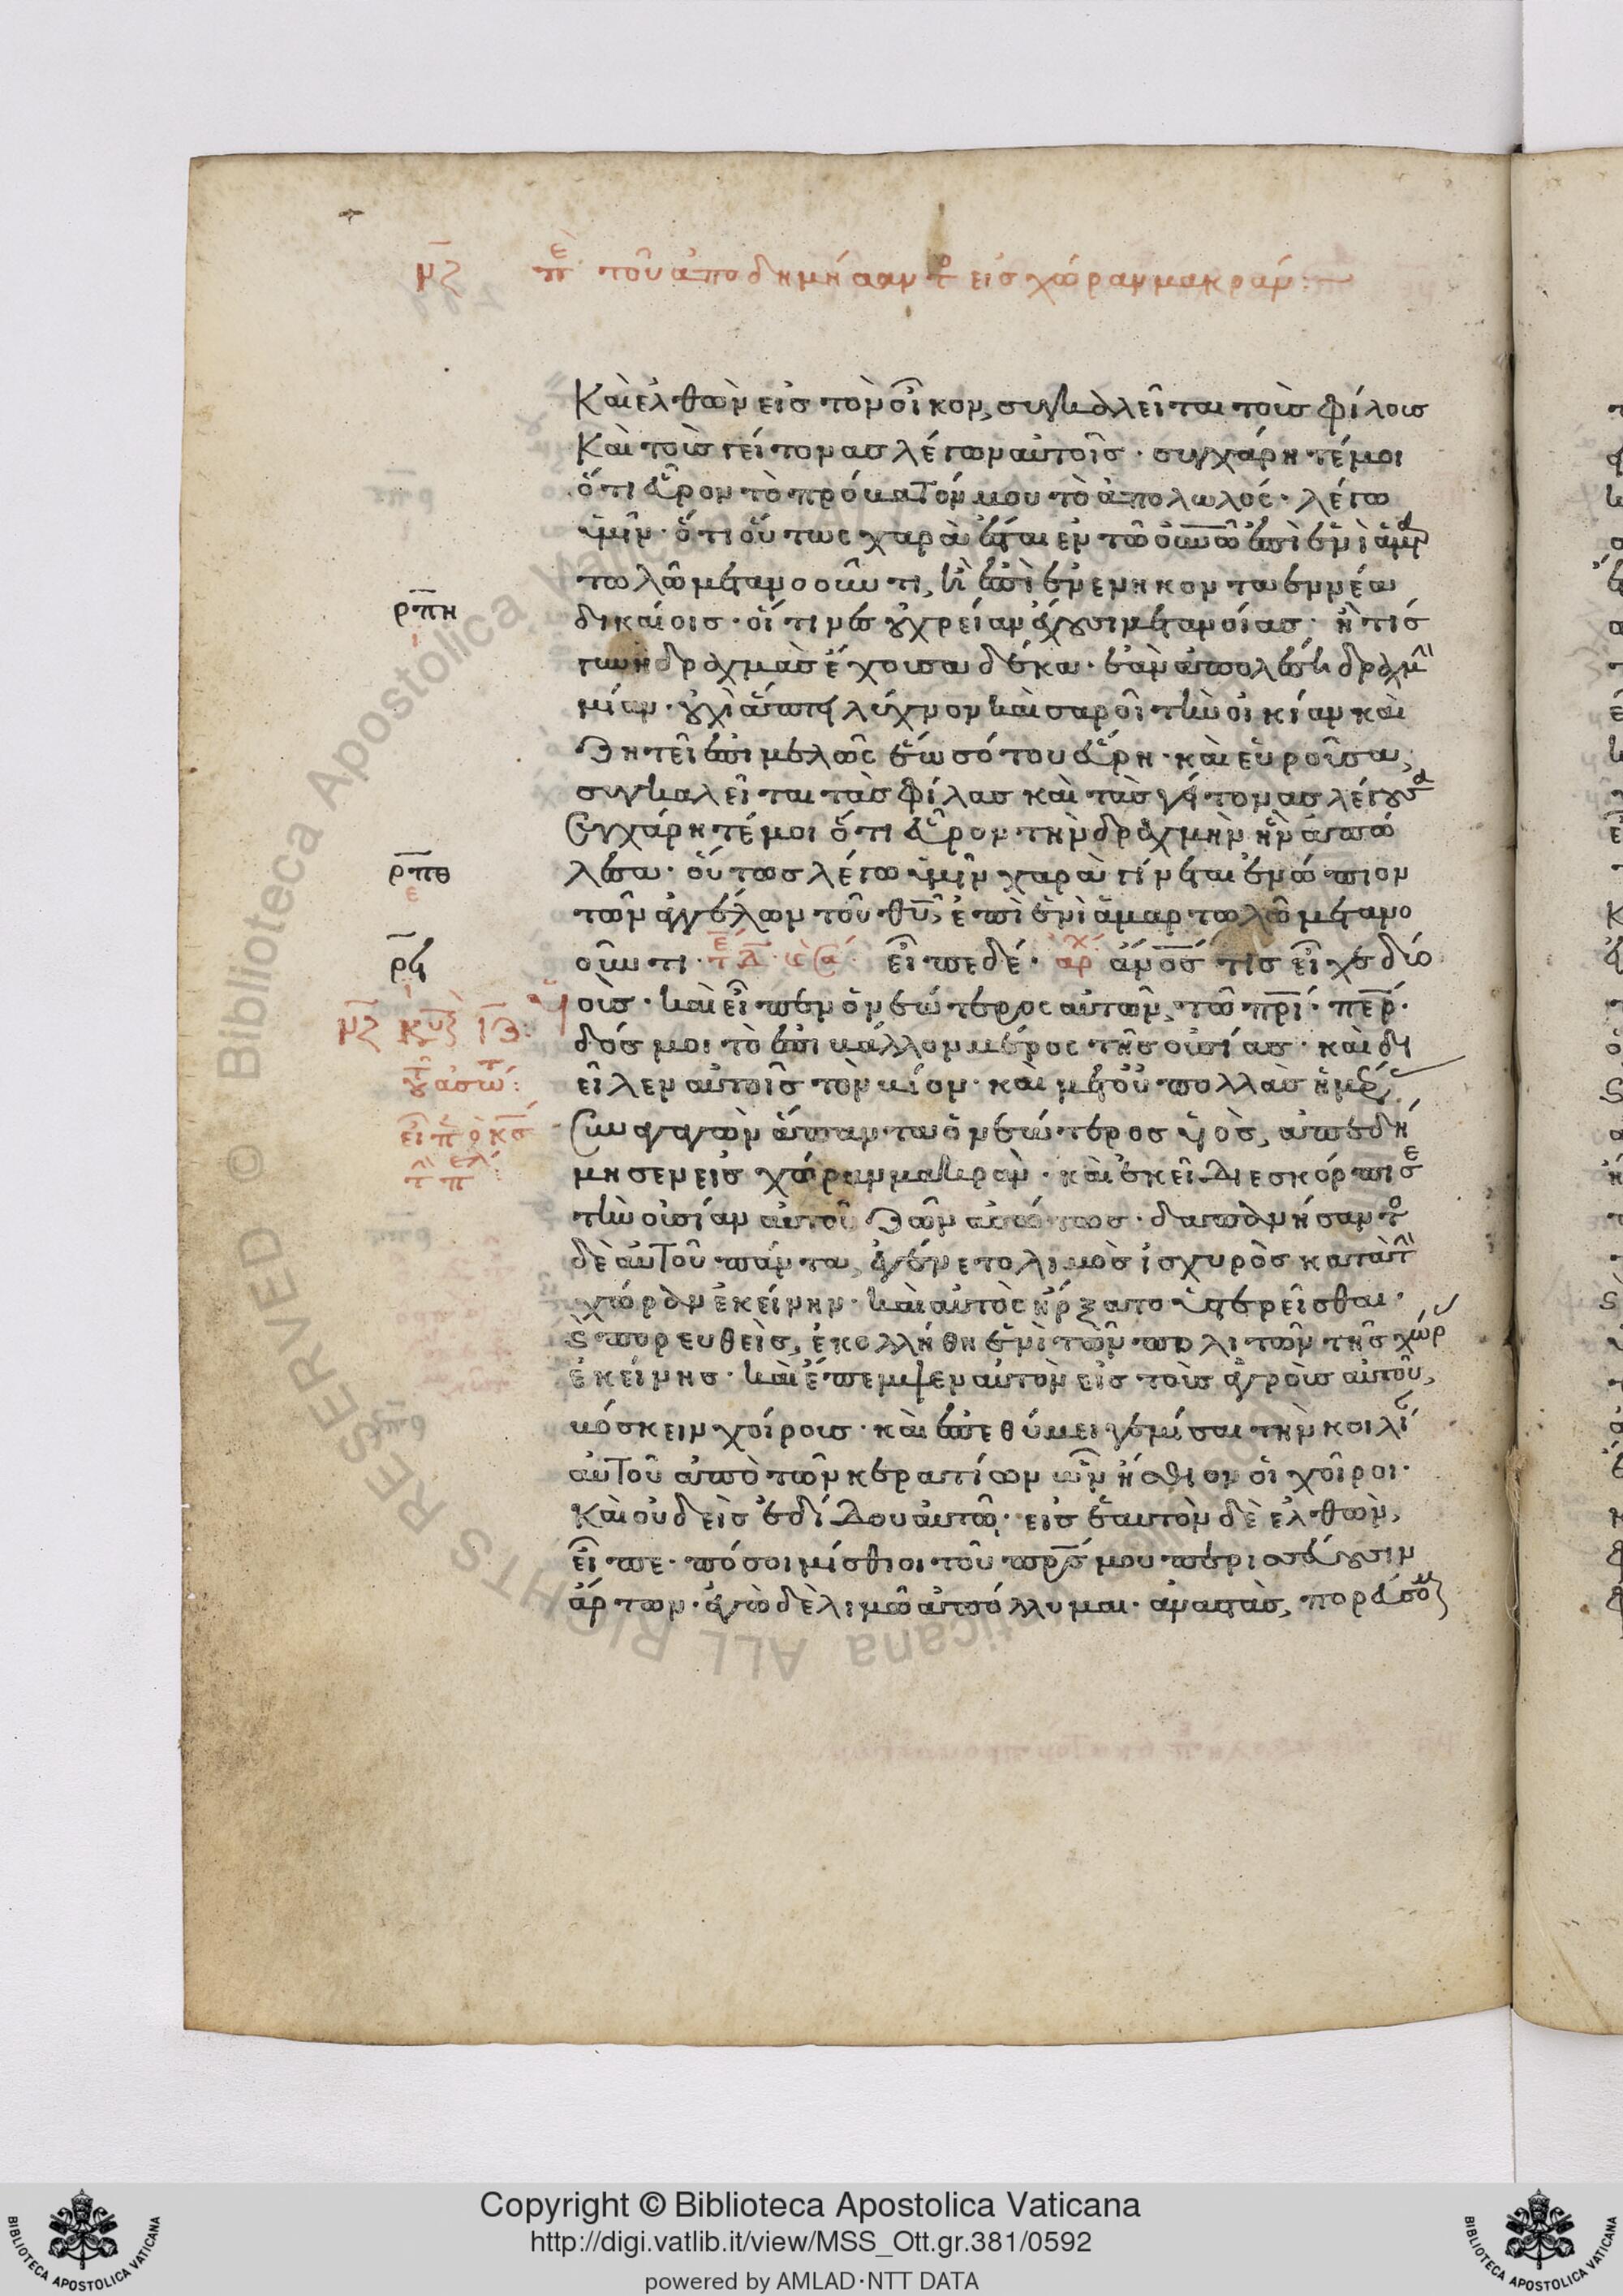 μζ πε τοῦ ἀποδημήσαντο εἰσ χώραν μακράν:
Καὶ ἐλθὼν εἰσ τὸν οἶκον, συγκαλεῖται τοὺσ φίλουσ
Καὶ τοὺσ γείτονασ λέγων αὐτοῖσ · συγχάρητέ μοι
ὅτι εὗρον τὸ πρόβατόν μου τὸ ἀπολωλός · λέγω
ὑμῖν · ὅτι οὕτως χαρὰ ἔσται ἐν τῶ οὐνῶ ἐπὶ ἑνὶ ἁμρ
τωλῶ μετανοοῦντι, ἢ ἐπὶ ἐνενηκονταεννέα
ρπη
ι
δικαίοισ · οἵτινεσ οὐ χρείαν ἔχουσι μετανοίασ · ἢ τίσ
γυνὴ δραχμὰσ ἔχουσα δέκα · ἐὰν ἀπολέση δραχμ
μίαν · οὐχὶ ἅπτει λύχνον καὶ σαροῖ τὴν οἰκίαν καὶ
ζητεῖ ἐπιμελῶς ἕωσ ὅτου εὕρη · καὶ εὑροῦσα,
συγκαλεῖται τὰσ φίλασ καὶ τὰσ γείτονασ λέγουσα
Συγχάρητέ μοι ὅτι εὗρον τὴν δραχμὴν ἣν ἀπώ
ρπθ
ε
λεσα · οὕτωσ λέγω ὑμῖν χαρὰ γίνεται ἐνώπιον
τῶν ἀγγέλων τοῦ θυ, ἐπὶ ἑνὶ ἁμαρτωλῶ μετανο
ρϟ
ι
οῦντι · εἶπε δέ · ἀρχ ἀνοσ τισ εἶχε δύο
μζ κυ ιζ:
υἱοὺσ · καὶ εἶπεν ὁ νεώτεροσ αὐτῶν, τῶ πρι · περ ·
δόσ μοι τὸ ἐπιβάλλον μέροσ τῆσ οὐσίασ · καὶ δι
τ ἀσώτ:
εῖλεν αὐτοῖσ τὸν βίον · καὶ μετ οὐ πολλὰσ ἡμέρ
εἶπ ὁ κσ
Συναγαγὼν ἅπαντα ὁ νεώτεροσ υἱὸσ, ἀπεδή
μησεν εἰσ χώραν μακρὰν · καὶ ἐκεῖ διεσκόρπισε
τὴν οὐσίαν αὐτοῦ ζῶν ἀσώτωσ · δαπανήσαντο
δὲ αὐτοῦ πάντα, ἐγένετο λιμὸσ ἰσχυρὸσ κατὰ τὴν
χώραν ἐκείνην · καὶ αὐτὸσ ἤρξατο ὑστερεῖσθαι ·
ϛ πορευθεὶσ, ἐκολλήθη ἑνὶ τῶν πολιτῶν τῆσ χώρ
ἐκείνησ · καὶ ἔπεμψεν αὐτὸν εἰσ τοὺσ ἀγροὺσ αὐτοῦ,
βόσκειν χοίρουσ · καὶ ἐπεθύμει γεμίσαι τὴν κοιλί
αὐτοῦ ἀπὸ τῶν κερατίων ὧν ἤσθιον οἱ χοῖροι ·
Καὶ οὐδεὶσ ἐδίδου αὐτῶ · εἰσ ἑαυτὸν δὲ ἐλθὼν,
εἶπε · πόσοι μίσθιοι τοῦ πρσ μου περισσεύουσιν
ἄρτων · ἐγὼ δὲ λιμῶ ἀπόλλυμαι · ἀναστὰσ, πορεύσομ
Copyright © Biblioteca Apostolica Vaticana
http://digi.vatlib.it/view/MSS_Ott.gr.381/0592
powered by AMLAD·NTT DATA
BIBLIOTECA APOSTOLICA VATICANA
BIBLIOTECA APOSTOLICA VATICANA